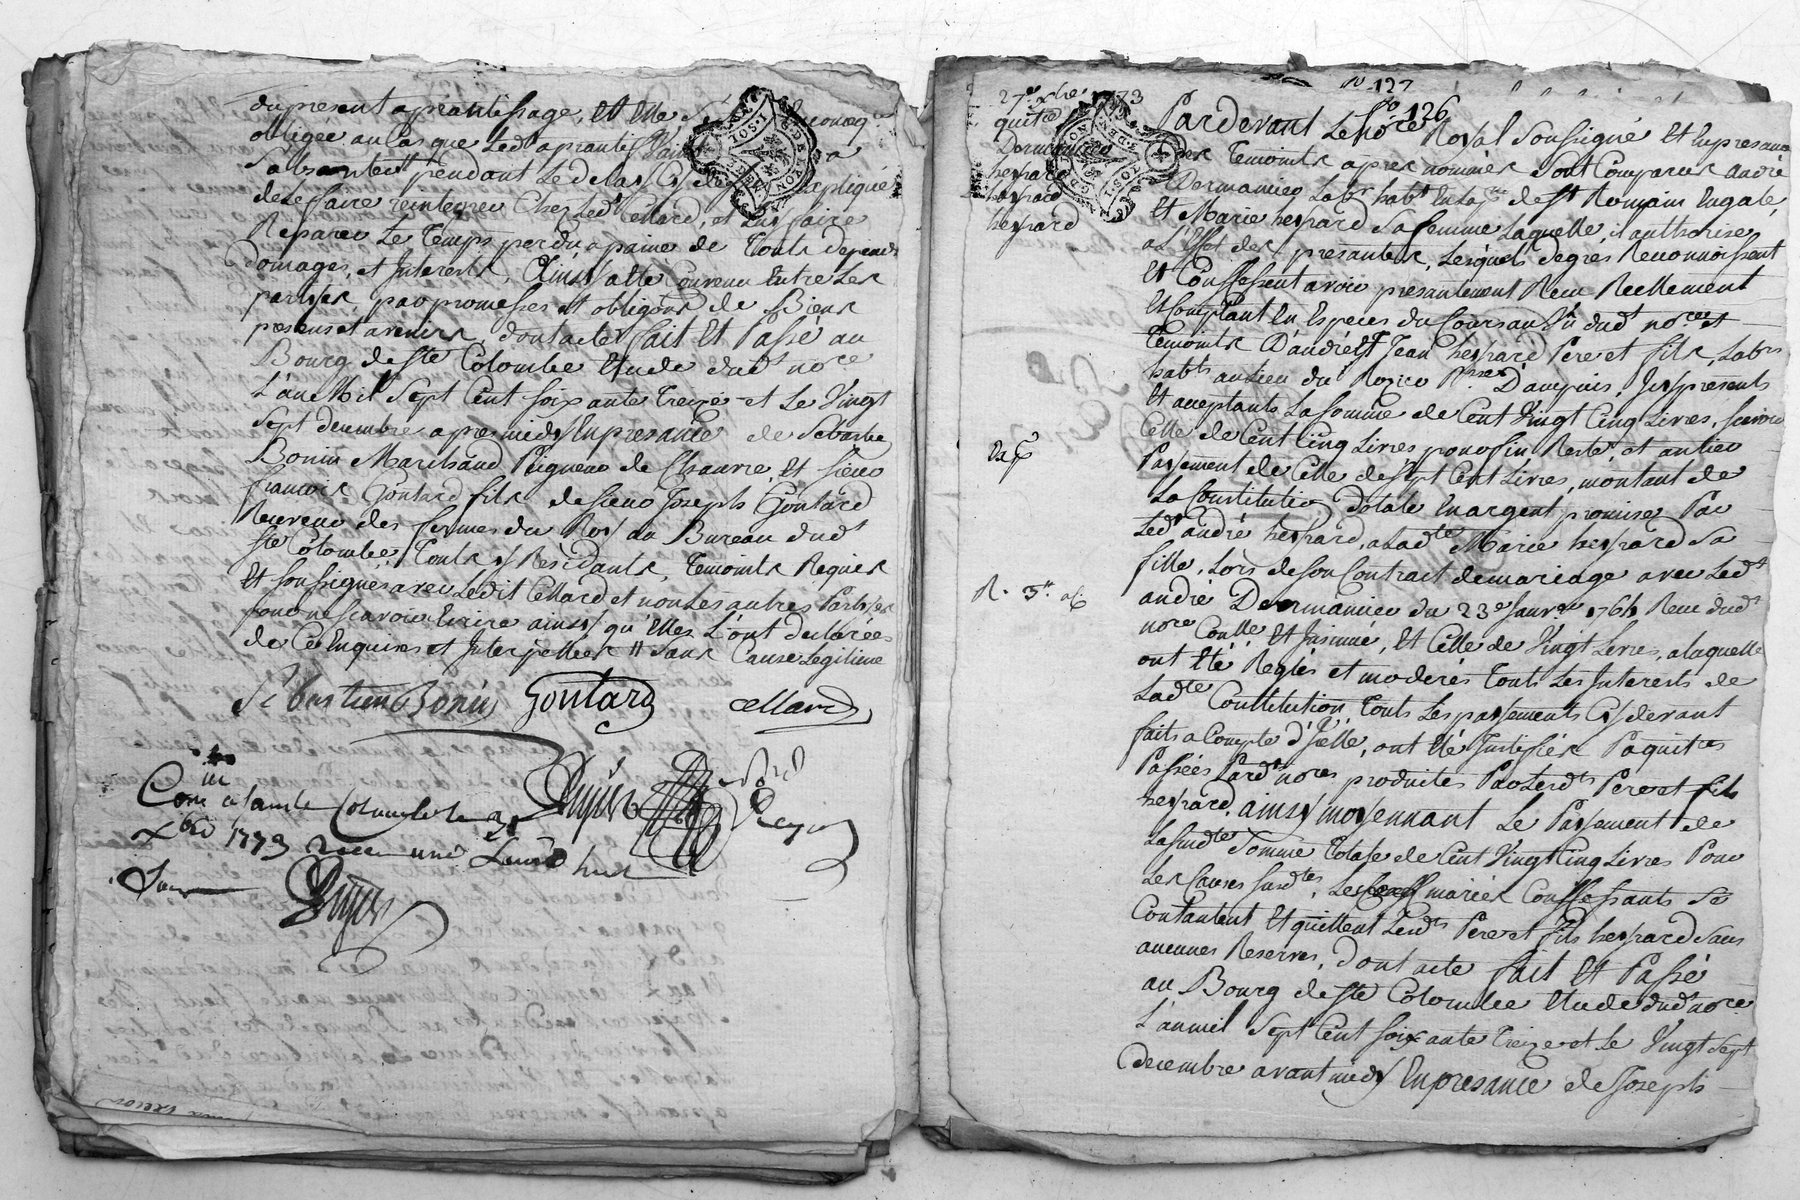 du present aprentissage, Et Elle
obligée au Cas que Led aprantif
Sabzantat pendant Le delay Cy
de Le faire reintegrer Chez Led.t Cellard, et Luy faire
Reparer Le Temps perdu apaine de Touts depens
domages, et Interests, Ainsy atté Convenu Entre Les
parties, par promesses et obligons de Biens
presens et avenirs, dont acte fait Et Passé au
Bourg de Ste Colombe Etude dud.t no.re
L'an Mil Sept Cent soixante Treize et Le Vingt
Sept decembre apres midy En presance de Sebastien
Bonin Marchand Peigneur de Chanvre, Et sieur
francois Goutard fils de sieur Joseph Goutard
Receveur des fermes du Roy au Bureau dud.t
Ste Colombe, Touts y Residants, Temoints Requis
Et soussignés avec Ledit Cellard et non Les autres Parties
pour ne scavoir Ecrire ainsy qu'Elles L'ont declarées
de Ce Enquises et Interpellées // Sans Cause Legitime
Sebastien Bonin Goutard cellard
Con.lé a sainte Colombe le 31
xbre 1773 recu une Livre huit
Sous
N 127
f.o 126
27.e xbre 1773
quitce
Dormamieu
heyrard
heyrard
heyrard
Pardevant Le No.re Royal Soussigné Et En presance
Des Temoints apres nommés Sont Comparus andré
Dermamieu Lab.r hab.t En La p.sse de S.t Romain Engale,
Et Marie heyrard Sa femme Laquelle, il authorise,
a L'Effet des presantes, Lesquels degrés Reconnoissent
Et Conffessent avoir presantement Receu Reellement
Et Comptant En Especes du Cours au Vû dud.t no.re et
Temoints D'andre Et Jean heyrard Pere et fils, Lab.rs
hab.ts au Lieu du Rozier P.sse D'ampuis, Icy presents
Et acceptants La somme de Cent Vingt Cinq Livres, scavoir
Celle de Cent Cinq Livres pour fin, Reste, et antier
Payement de Celle de Sept Cent Livres, montant de
La Constitution Dotale En argent promise Par
Led.t andré heyrard, a Lad.te Marie heyrard Sa
fille, Lors de son Contract de mariage avec Led.t
R. 3.tt
andré Dermamieu du 23.e Janvier 1764 Receu dud.t
no.re Conllé Et Insinué, Et Celle de Vingt Livres, a laquelle
ont Eté Reglés et moderés Touts Les Interests de
Lad.te Constitution, Touts Les payements Cy devant
faits a Compte d'Jcelle, ont Eté Justifiés Par quittces
Passées Pard.t no.res produites Par Lesd.ts Pere et fils
heyrard, ainsy moyennant Le Payement de
La susd.te Somme Totale de Cent Vingt Cinq Livres Pour
Les Causes susd.tes, Les mariés Conffessants Se
Contantent Et quittent Lesd.ts Pere et fils heyrard Sans
aucunes Reserves, dont acte fait Et Passé
au Bourg de Ste Colombe Etude dud.t no.re
L'an mil Sept Cent soixante Treize et Le Vingt Sept
decembre avant midy En presance de Joseph